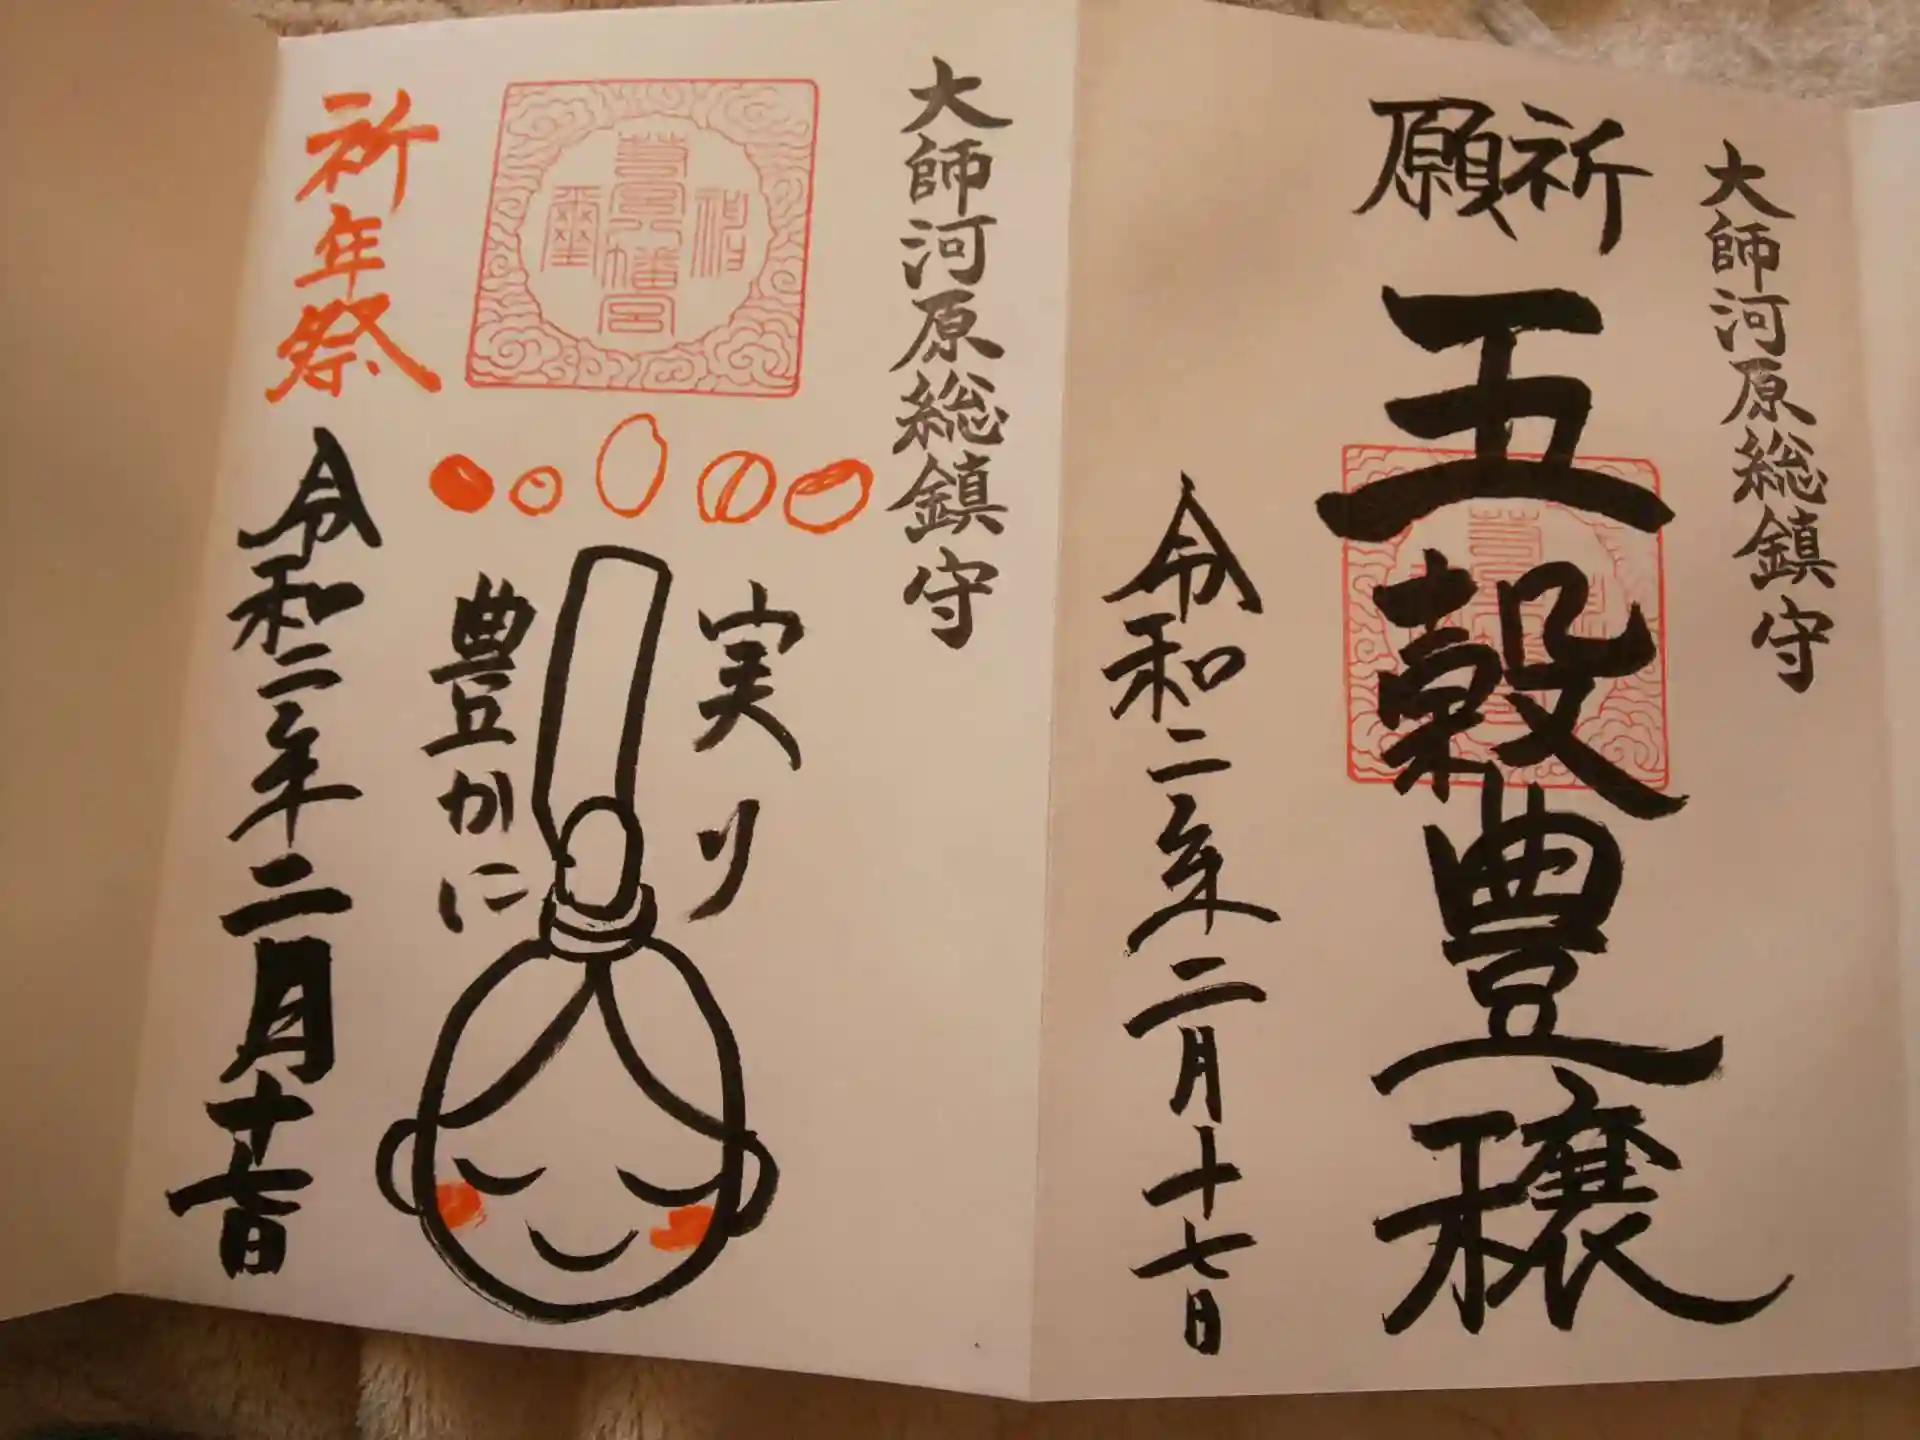 大師河原総鎮守
祈願
五穀豊穣
令和二年二月十七日
大師河原総鎮守
実り
豊かに
祈年祭
令和二年二月十七日